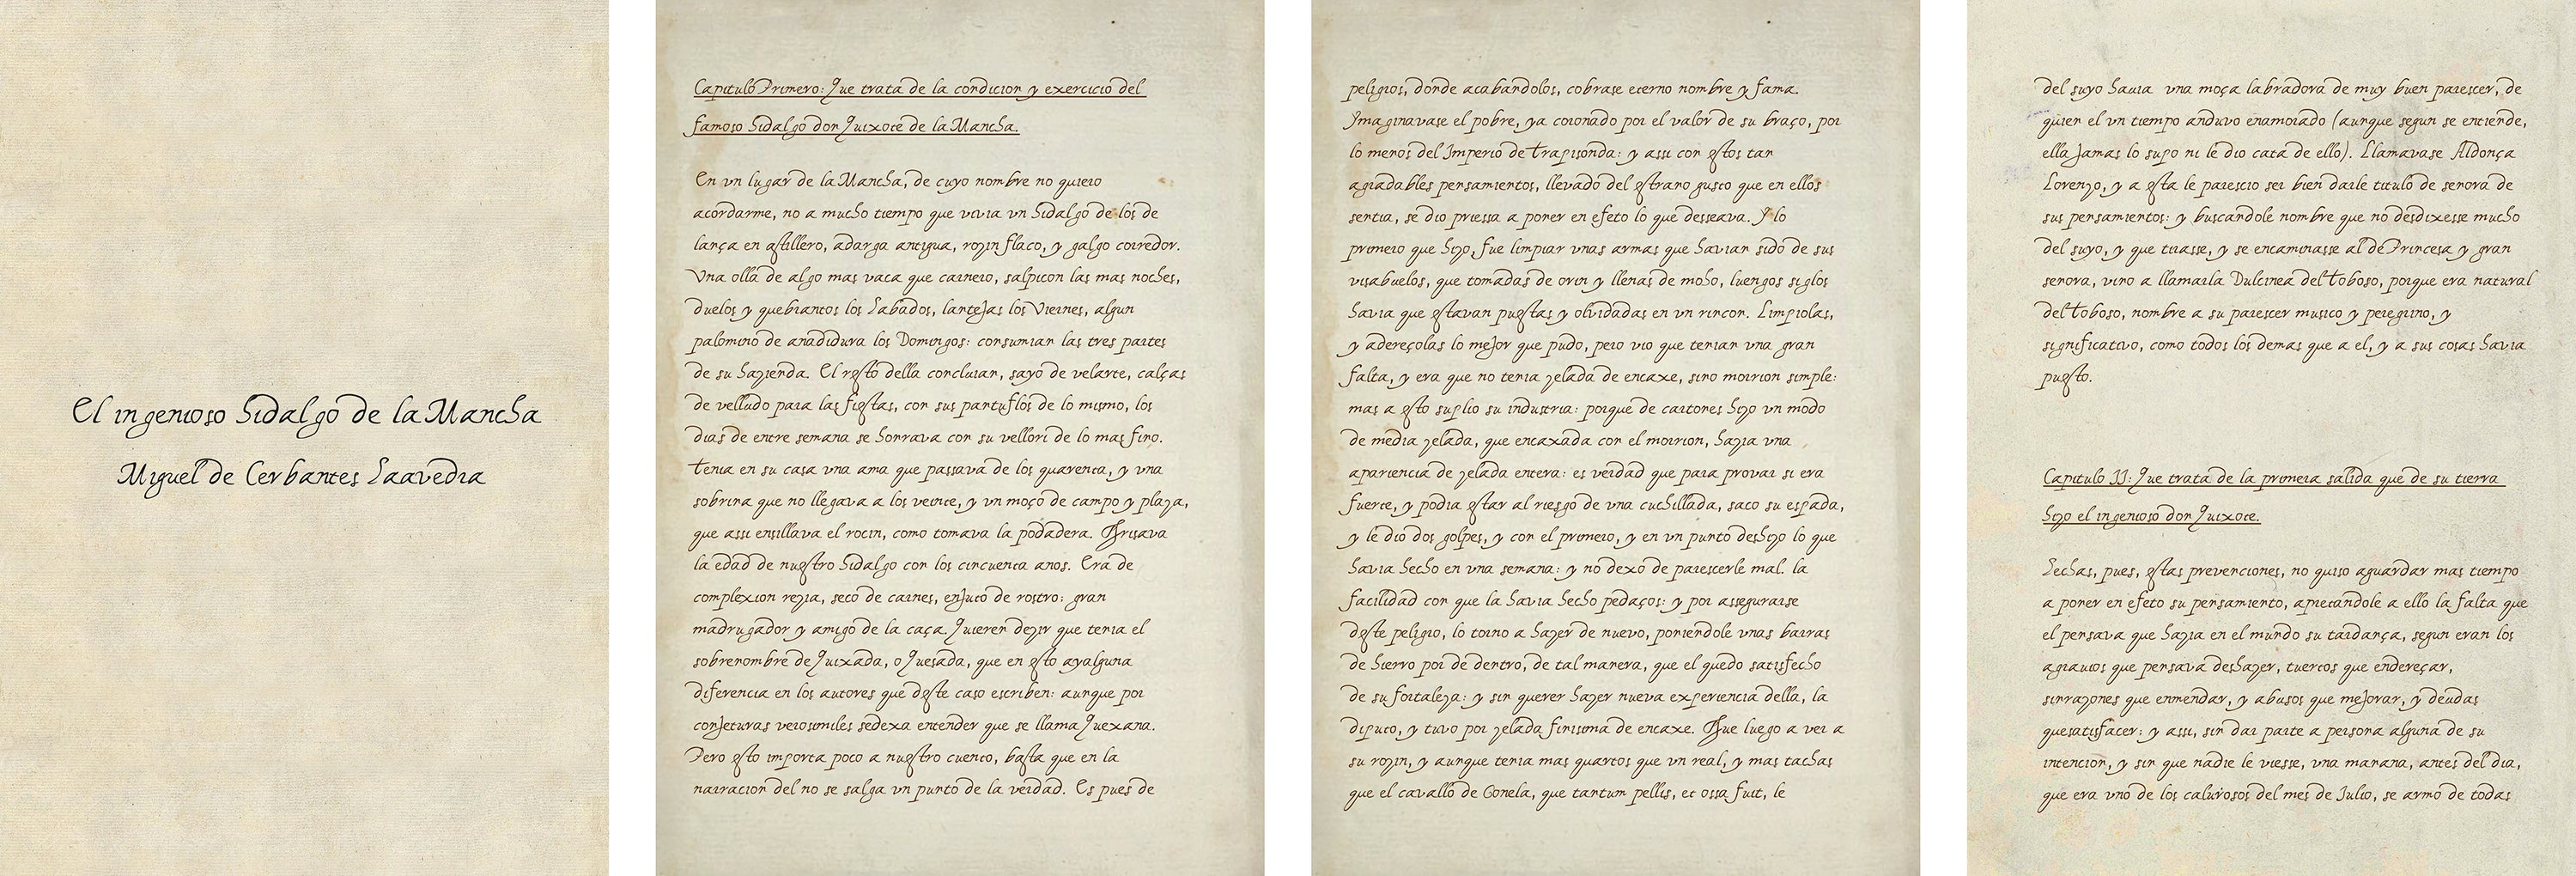 El ingenioso hidalgo de la Mancha
Miguel de Cerbantes Saavedra
Capitulo Primero: Que trata de la condicion y exercicio del
famoso hidalgo don Quixote de la Mancha.
En vn lugar de la Mancha, de cuyo nombre no quiero
acordarme, no a mucho tiempo que vivia vn hidalgo de los de
lança en astillero, adarga antigua, rozin flaco, y galgo corredor.
Vna olla de algo mas vaca que carnero, salpicon las mas noches,
duelos y quebrantos los Sabados, lantejas los Viernes, algun
palomino de anadidura los Domingos: consumian las tres partes
de su hazienda. El resto della concluian, sayo de velarte, calças
de velludo para las fiestas, con sus pantuflos de lo mismo, los
dias de entre semana se honrava con su vellori de lo mas fino.
Tenia en su casa vna ama que passava de los quarenta, y vna
sobrina que no llegava a los veinte, y vn moço de campo y plaza,
que assi ensillava el rocin, como tomava la podadera. Frisava
la edad de nuestro hidalgo con los cincuenta anos. Era de
complexion rezia, seco de carnes, enjuto de rostro: gran
madrugador y amigo de la caça. Quieren dezir que tenia el
sobrenombre de Quixada, o Quesada, que en esto ayalguna
diferencia en los autores que deste caso escriben: aunque por
conjeturas verosimiles sedexa entender que se llama Quexana.
Pero esto importa poco a nuestro cuento, basta que en la
narracion del no se salga vn punto de la verdad. Es pues de
peligros, donde acabandolos, cobrase eterno nombre y fama.
Ymaginavase el pobre, ya coronado por el valor de su braço, por
lo menos del Imperio de Trapisonda: y assi con estos tan
agradables pensamientos, llevado del estrano gusto que en ellos
sentia, se dio priessa a poner en efeto lo que desseava. Y lo
primero que hizo, fue limpiar vnas armas que havian sido de sus
visabuelos, que tomadas de orin y llenas de moho, luengos siglos
havia que estavan puestas y olvidadas en vn rincon. Limpiolas,
y adereçolas lo mejor que pudo, pero vio que tenian vna gran
falta, y era que no tenia zelada de encaxe, sino morrion simple:
mas a esto suplio su industria: porque de cartones hizo vn modo
de media zelada, que encaxada con el morrion, hazia vna
apariencia de zelada entera: es verdad que para provar si era
fuerte, y podia estar al riesgo de vna cuchillada, saco su espada,
y le dio dos golpes, y con el primero, y en vn punto deshizo lo que
havia hecho en vna semana: y no dexo de parescerle mal. la
facilidad con que la havia hecho pedaços: y por assegurarse
deste peligro, lo torno a hazer de nuevo, poniendole vnas barras
de hierro por de dentro, de tal manera, que el quedo satisfecho
de su fortaleza: y sin querer hazer nueva experiencia della, la
diputo, y tuvo por zelada finisima de encaxe. Fue luego a ver a
su rozin, y aunque tenia mas quartos que vn real, y mas tachas
que el cavallo de Gonela, que tantum pellis, et ossa fuit, le
del suyo havia vna moça labradora de muy buen parescer, de
quien el vn tiempo anduvo enamorado (aunque segun se entiende,
ella jamas lo supo ni le dio cata de ello). Llamavase Aldonça
Lorenzo, y a esta le parescio ser bien darle titulo de senora de
sus pensamientos: y buscandole nombre que no desdixesse mucho
del suyo, y que tirasse, y se encaminasse al de Princesa y gran
senora, vino a llamarla Dulcinea del Toboso, porque era natural
del Toboso, nombre a su parescer musico y peregrino, y
significativo, como todos los demas que a el, y a sus cosas havia
puesto.
Capitulo II: Que trata de la primera salida que de su tierra
hizo el ingenioso don Quixote.
Hechas, pues, estas prevenciones, no quiso aguardar mas tiempo
a poner en efeto su pensamiento, apretandole a ello la falta que
el pensava que hazia en el mundo su tardança, segun eran los
agravios que pensava deshazer, tuertos que endereçar,
sinrazones que enmendar, y abusos que mejorar, y deudas
quesatisfacer: y assi, sin dar parte a persona alguna de su
intencion, y sin que nadie le viesse, vna manana, antes del dia,
que era vno de los calurosos del mes de Julio, se armo de todas